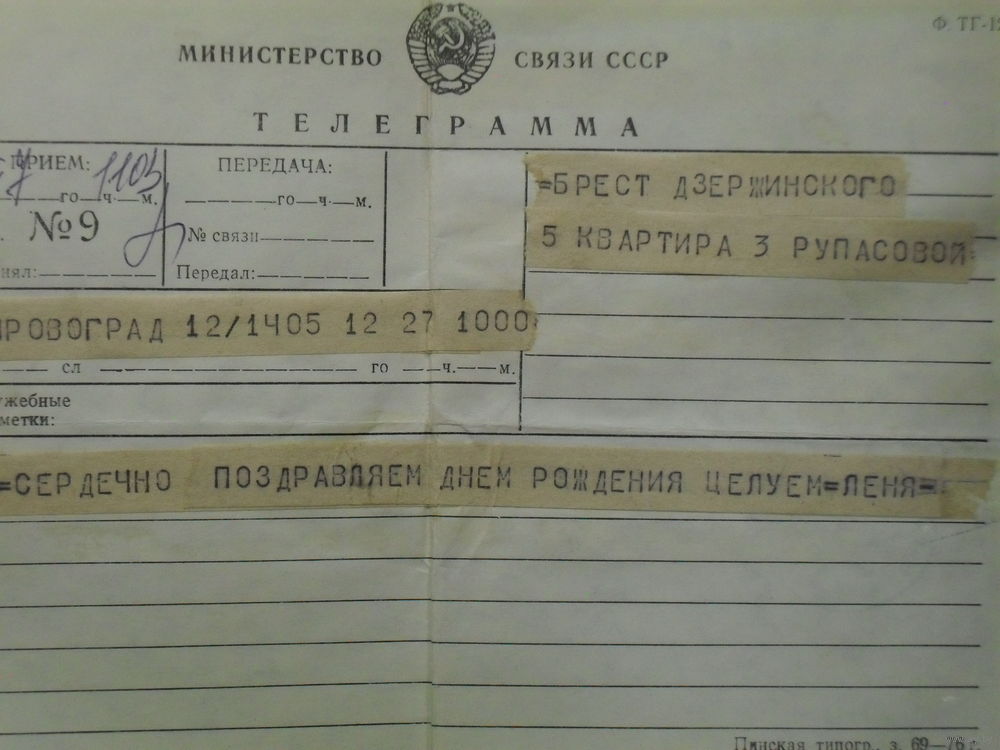 Ф. ТГ-1
МИНИСТЕРСТВО СВЯЗИ СССР
ТЕЛЕГРАММА
ПРИЕМ: 1103
го ч. м.
№9
ПЕРЕДАЧА:
го ч. м.
№ связи
Передал:
=БРЕСТ ДЗЕРЖИНСКОГО
5 КВАРТИРА 3 РУПАСОВОЙ=
РОВОГРАД 12/1405 12 27 1000
сл го ч. м.
жебные
метки:
=СЕРДЕЧНО ПОЗДРАВЛЯЕМ ДНЕМ РОЖДЕНИЯ ЦЕЛУЕМ=ЛЕНЯ=
Пинская типогр., з. 69—76 г.